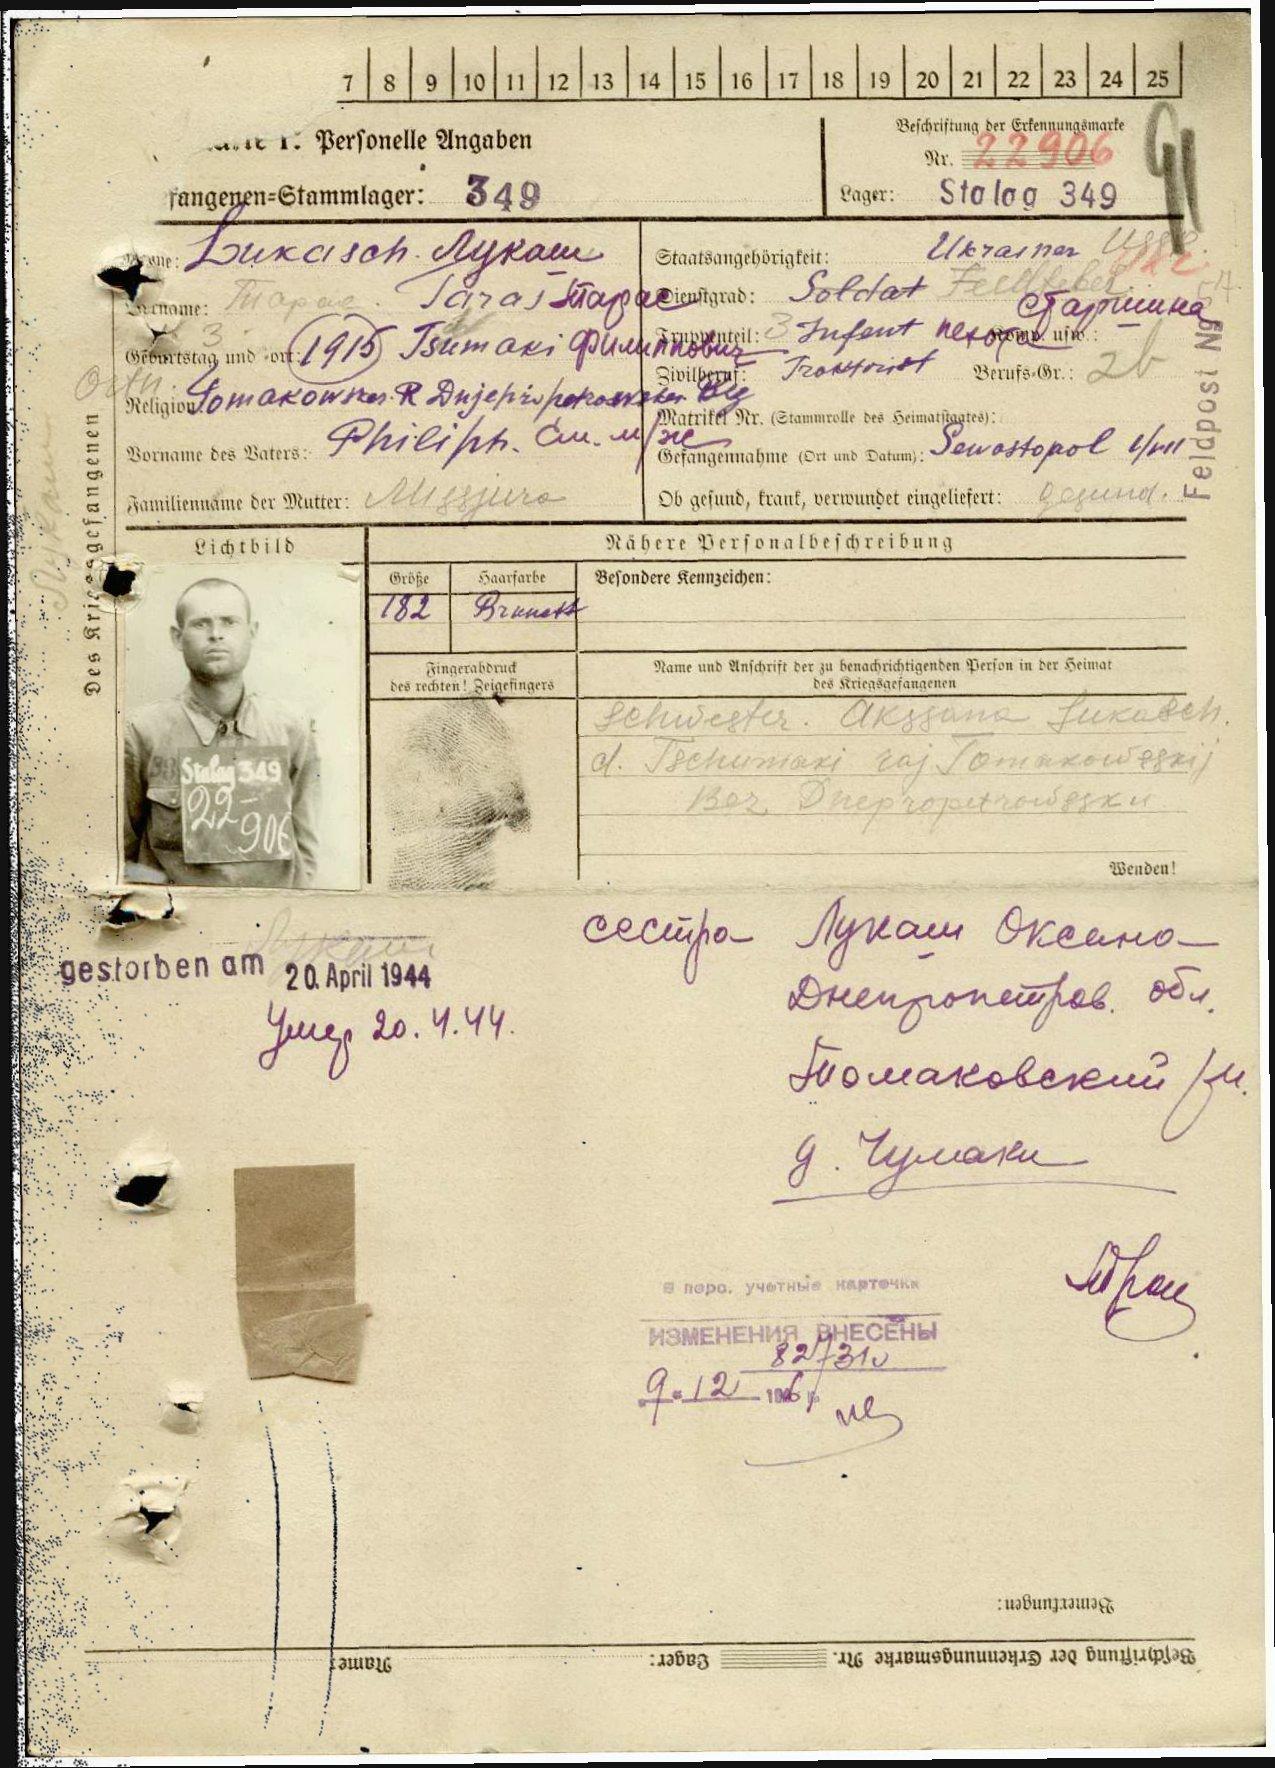 7 8 9 10 11 12 13 14 15 16 17 18 19 20 21 22 23 24 25
I: Personelle Angaben
Beschriftung der Erkennungsmarke
Nr. 22906
fangenen=Stammlager: 349
Lager: Stalag 349
Lukasch. Лукаш
Staatsangehörigkeit: Ukrainer
Vorname: Тарас. Taras Тарас
Dienstgrad: Soldat Feldfebel старшина
Geburtstag und -ort: 1915 Tsumaki Филиппович
Truppenteil: Infent пехота Komp. usw.:
Zivilberuf: Traktorist Berufs-Gr.: 2b
Religion: Tomakowsker R Dnjepropetrowsker
Matrikel Nr. (Stammrolle des Heimatstaates):
Vorname des Vaters: Philiph.
Gefangennahme (Ort und Datum): Sewastopol 1/VII
Familienname der Mutter: Missjura
Ob gesund, krank, verwundet eingeliefert: gesund.
Des Kriegsgefangenen
Лукаш
Feldpost
Lichtbild
Nähere Personalbeschreibung
Größe
Haarfarbe
Besondere Kennzeichen:
182
Brunett
Fingerabdruck
des rechten! Zeigefingers
Name und Anschrift der zu benachrichtigenden Person in der Heimat
des Kriegsgefangenen
Schwester. Akssana Lukasch.
d. Tschumaki raj Tomakowsskij
Bez. Dnepropetrowssku
Stalag 349
22-
906
Wenden!
Лукаш
gestorben am 20. April 1944
Умер 20.4.44.
сестра Лукаш Оксана
Днепропетров. обл.
Томаковский
д. Чумаки
В перс. учетные карточки
ИЗМЕНЕНИЯ ВНЕСЕНЫ
9.12
Bemerkungen:
Beschriftung der Erkennungsmarke Nr. Lager: Name: